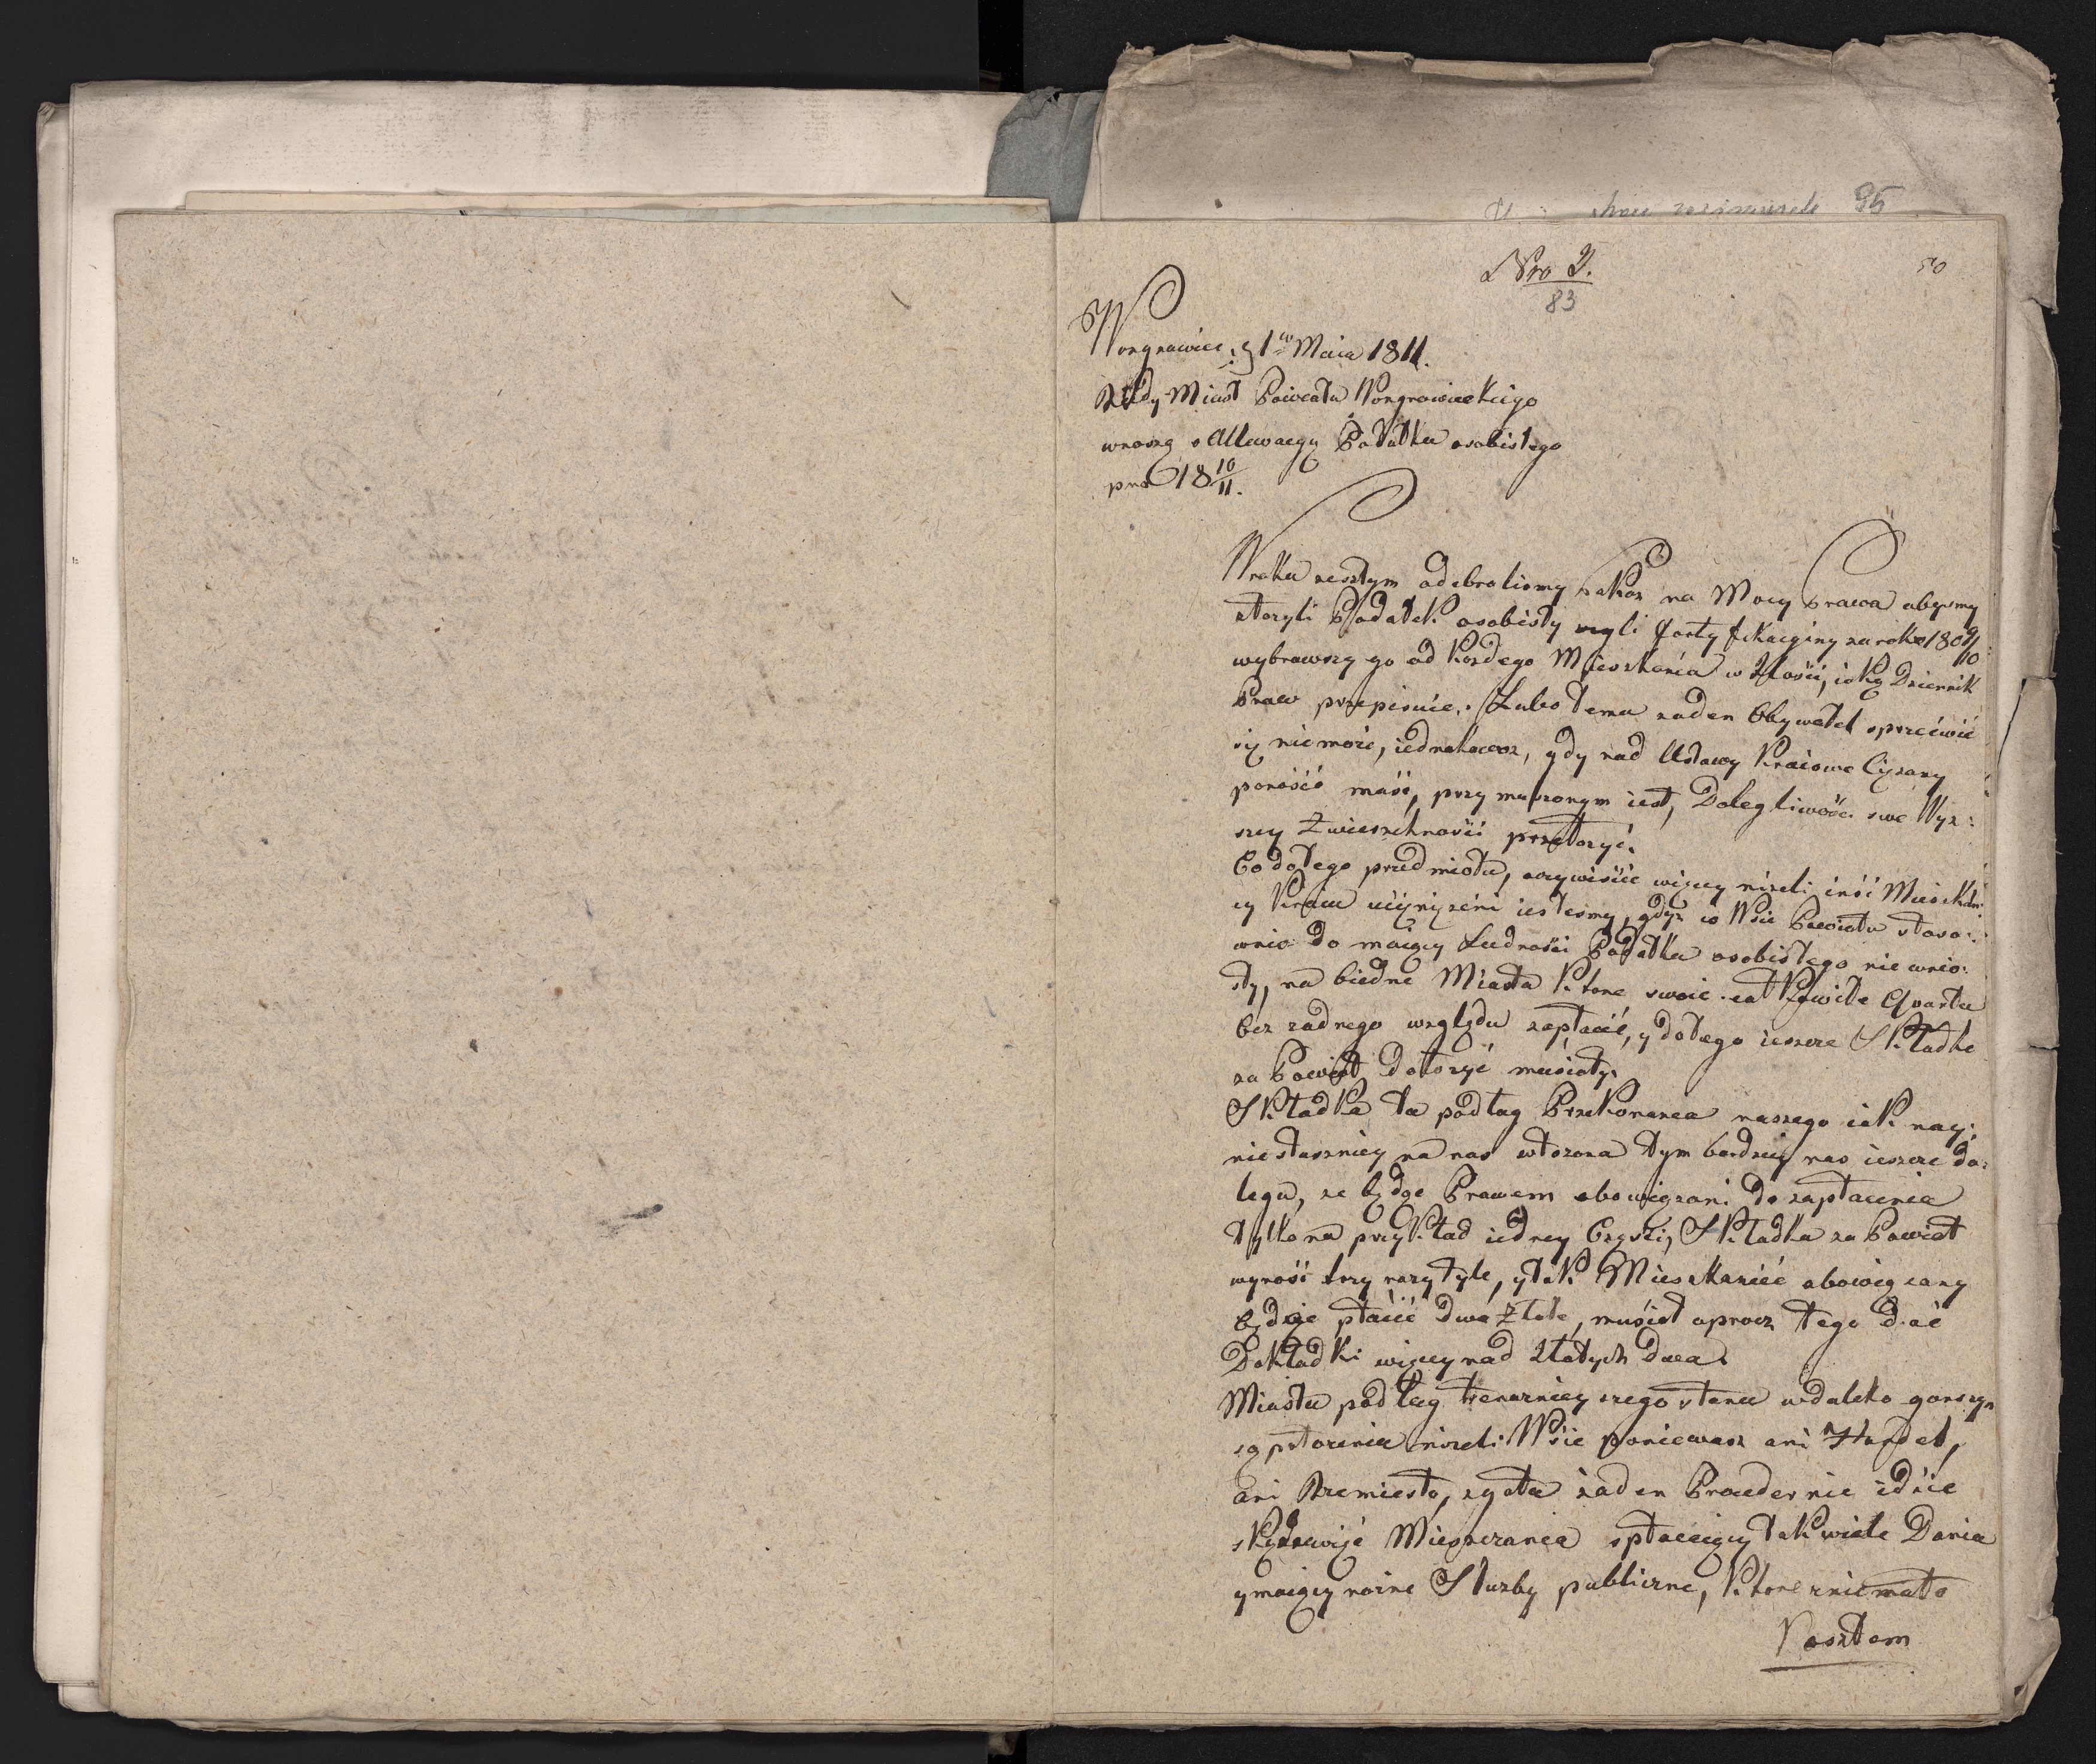 95
Nro 2.
83
50
Wongrowiec d 1go Maia 1811.
Rządy Miast Powiatu Wongrowieckiego
wnoszą o Allewacyą Podatku osobistego
pro 18 10/11.
W roku zeszłym odebralismy nakaz na Mocy Prawa abysmy
złozyli Podatek osobisty czyli fortyfikacyiny za rok 1809/10
wybrawszy go od kozdego Mieszkańca w Ilości, iaką Dziennik
Praw przepisuie. Lubo temu zaden Obywatel sprzećiwić
się nie moze, iednakowoz, gdy nad Ustawy Kraiowe Ciężary
ponośić máśi, przymuszonym iest, Dolegliwośći swe Wyz:
szey Zwierzchnośći przełozyć.
Co do tego przedmiotu, oczywiśćie więcey nizeli inśi Mieszkań:
cy Kraiu ućiązeni iestesmy, gdyz co Wsie Powiatu stoso:
wnie do maiący Ludnośći Podatku osobistego nie wnio:
sły, na biedne Miasta ktore swoie całkowite Quanta
bez zadnego względu zapłacić, y do tego ieszcze Składke
za Powiat dołozyć musiały.
Składka ta podług Przekonania naszego iak nay:
niesłuszniey na nas włozona tym bardziey nas ieszcze do:
lega, ze będąc Prawem obowiązani do zapłacenia
tylko na przykład iedney Częśći, Składka za Powiat
wynośi trzy razy tyle, y tak Mieszkaniec obowiązany
będąc płaćić dwa Złote, muśiał oprocz tego dać
Dokładki więcey nad Złotych dwa.
Miasta podług teraznieyszego stanu w daleko gorszym
są połozeniu nizeli Wśie poniewasz ani Handel,
ani Rzemiesło, zgoła zaden Proceder nie idźie
skądze wyżyć Mieszczanca opłacaiący tak wiele Dania
y maiący rozne Słuzby publiczne, ktore z niemało
Kosztem